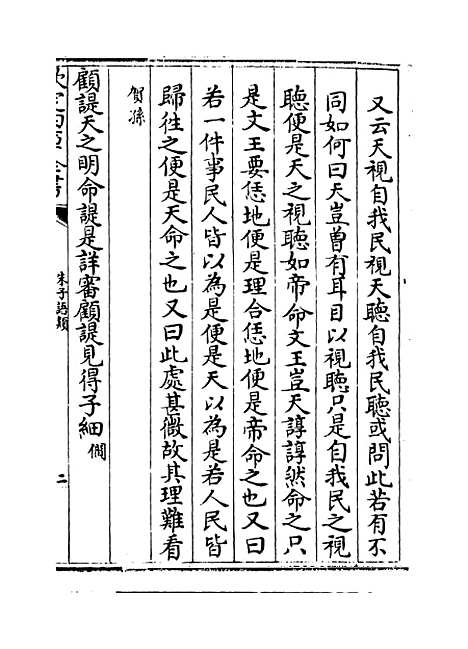 又云天視自我民視天聽自我民聽或問此若有不
同如何曰天豈曾有耳目以視聽只是自我民之視
聽便是天之視聽如帝命文王豈天諄諄然命之只
是文王要恁地便是理合恁地便是帝命之也又曰
若一件事民人皆以為是便是天以為是若人民皆
歸往之便是天命之也又曰此處甚微故其理難看
賀孫
顧諟天之明命諟是詳審顧諟見得子細 僩
朱子語類
二